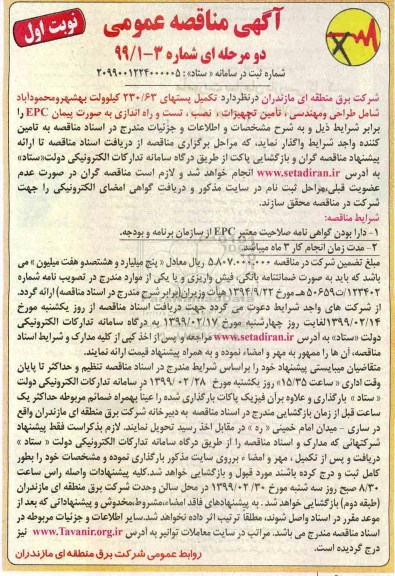 نوبت اول
آگهی مناقصه عمومی
دو مرحله ای شماره ۳-۹۹/۱
شماره ثبت در سامانه «ستاد»: ۲۰۹۹۰۰۱۲۲۴۰۰۰۰۰۵
شرکت برق منطقه ای مازندران درنظردارد تکمیل پستهای ۲۳۰/۶۳ کیلوولت بهشهرومحمودآباد
شامل طراحی ومهندسی ، تأمین تجهیزات ، نصب ، تست و راه اندازی به صورت پیمان EPC را
برابر شرایط ذیل و به شرح مشخصات و اطلاعات و جزئیات مندرج در اسناد مناقصه به تامین
کننده واجد شرایط واگذار نماید، که مراحل برگزاری مناقصه از دریافت اسناد مناقصه تا ارائه
پیشنهاد مناقصه گران و بازگشایی پاکت از طریق درگاه سامانه تدارکات الکترونیکی دولت«ستاد»
به آدرس www.setadiran.ir انجام خواهد شد و لازم است مناقصه گران در صورت عدم
عضویت قبلی،مراحل ثبت نام در سایت مذکور و دریافت گواهی امضای الکترونیکی را جهت
شرکت در مناقصه محقق سازند.
شرایط مناقصه:
۱- دارا بودن گواهی نامه صلاحیت معتبر EPC از سازمان برنامه و بودجه.
۲- مدت زمان انجام کار ۳ ماه میباشد.
مبلغ تضمین شرکت در مناقصه ۵.۸۰۷.۰۰۰.۰۰۰ ریال معادل « پنج میلیارد و هشتصدو هفت میلیون » می
باشد که باید به صورت ضمانتنامه بانکی، فیش واریزی و یا یکی از موارد مندرج در تصویب نامه شماره
۱۲۳۴۰۲/ت۵۰۶۵۹هـ مورخ ۱۳۹۴/۹/۲۲ هیأت وزیران(برابر شرح مندرج در اسناد مناقصه) ارائه گردد.
از شرکت های واجد شرایط دعوت می گردد جهت دریافت اسناد مناقصه از روز یکشنبه مورخ
۱۳۹۹/۰۲/۱۴لغایت روز چهارشنبه مورخ ۱۳۹۹/۰۲/۱۷ به درگاه سامانه تدارکات الکترونیکی
دولت «ستاد» به آدرس www.setadiran.ir مراجعه و پس از اخذ کپی از کلیه مدارک و شرایط اسناد
مناقصه، آن ها را ممهور به مهر و امضاء نموده و به همراه پیشنهاد قیمت ارائه نمایند.
متقاضیان میبایستی پیشنهاد خود را براساس شرایط مندرج در اسناد مناقصه تنظیم و حداکثر تا پایان
وقت اداری « ساعت ۱۵/۳۵» روز یکشنبه مورخ ۱۳۹۹/۰۲/۲۸ در سامانه تدارکات الکترونیکی دولت
« ستاد » بارگذاری و علاوه برآن فیزیک پاکات بارگذاری شده را عیناً بهمراه ضمائم مربوطه حداکثر یک
ساعت قبل از زمان بازگشایی مندرج در اسناد مناقصه به دبیرخانه شرکت برق منطقه ای مازندران واقع
در ساری - میدان امام خمینی « ره » در مقابل اخذ رسید تحویل نمایند. لازم بذکراست فقط پیشنهاد
شرکتهائی که مدارک و اسناد مناقصه را از طریق درگاه سامانه تدارکات الکترونیکی دولت « ستاد »
دریافت و پس از تکمیل ، مهر و امضاء ، برروی سایت مذکور بارگذاری نموده و مشخصات خود را بطور
کامل ثبت و درج کرده باشند مورد قبول و بازگشایی خواهد شد.کلیه پیشنهادات واصله راس ساعت
۸/۳۰ صبح روز سه شنبه مورخ ۱۳۹۹/۰۲/۳۰ در محل سالن وحدت شرکت برق منطقه ای مازندران
(طبقه دوم) بازگشایی خواهد شد . به پیشنهادهای فاقد امضاء،مشروط،مخدوش و پیشنهاداتی که بعد از
موعد مقرر در اسناد واصل شوند، مطلقاً ترتیب اثر داده نخواهد شد.سایر اطلاعات و جزئیات مربوطه در
اسناد مناقصه مندرج می باشد. مراتب در سایت معاملات توانیر به آدرس www.Tavanir.org.ir نیز
درج گردیده است.
روابط عمومی شرکت برق منطقه ای مازندران